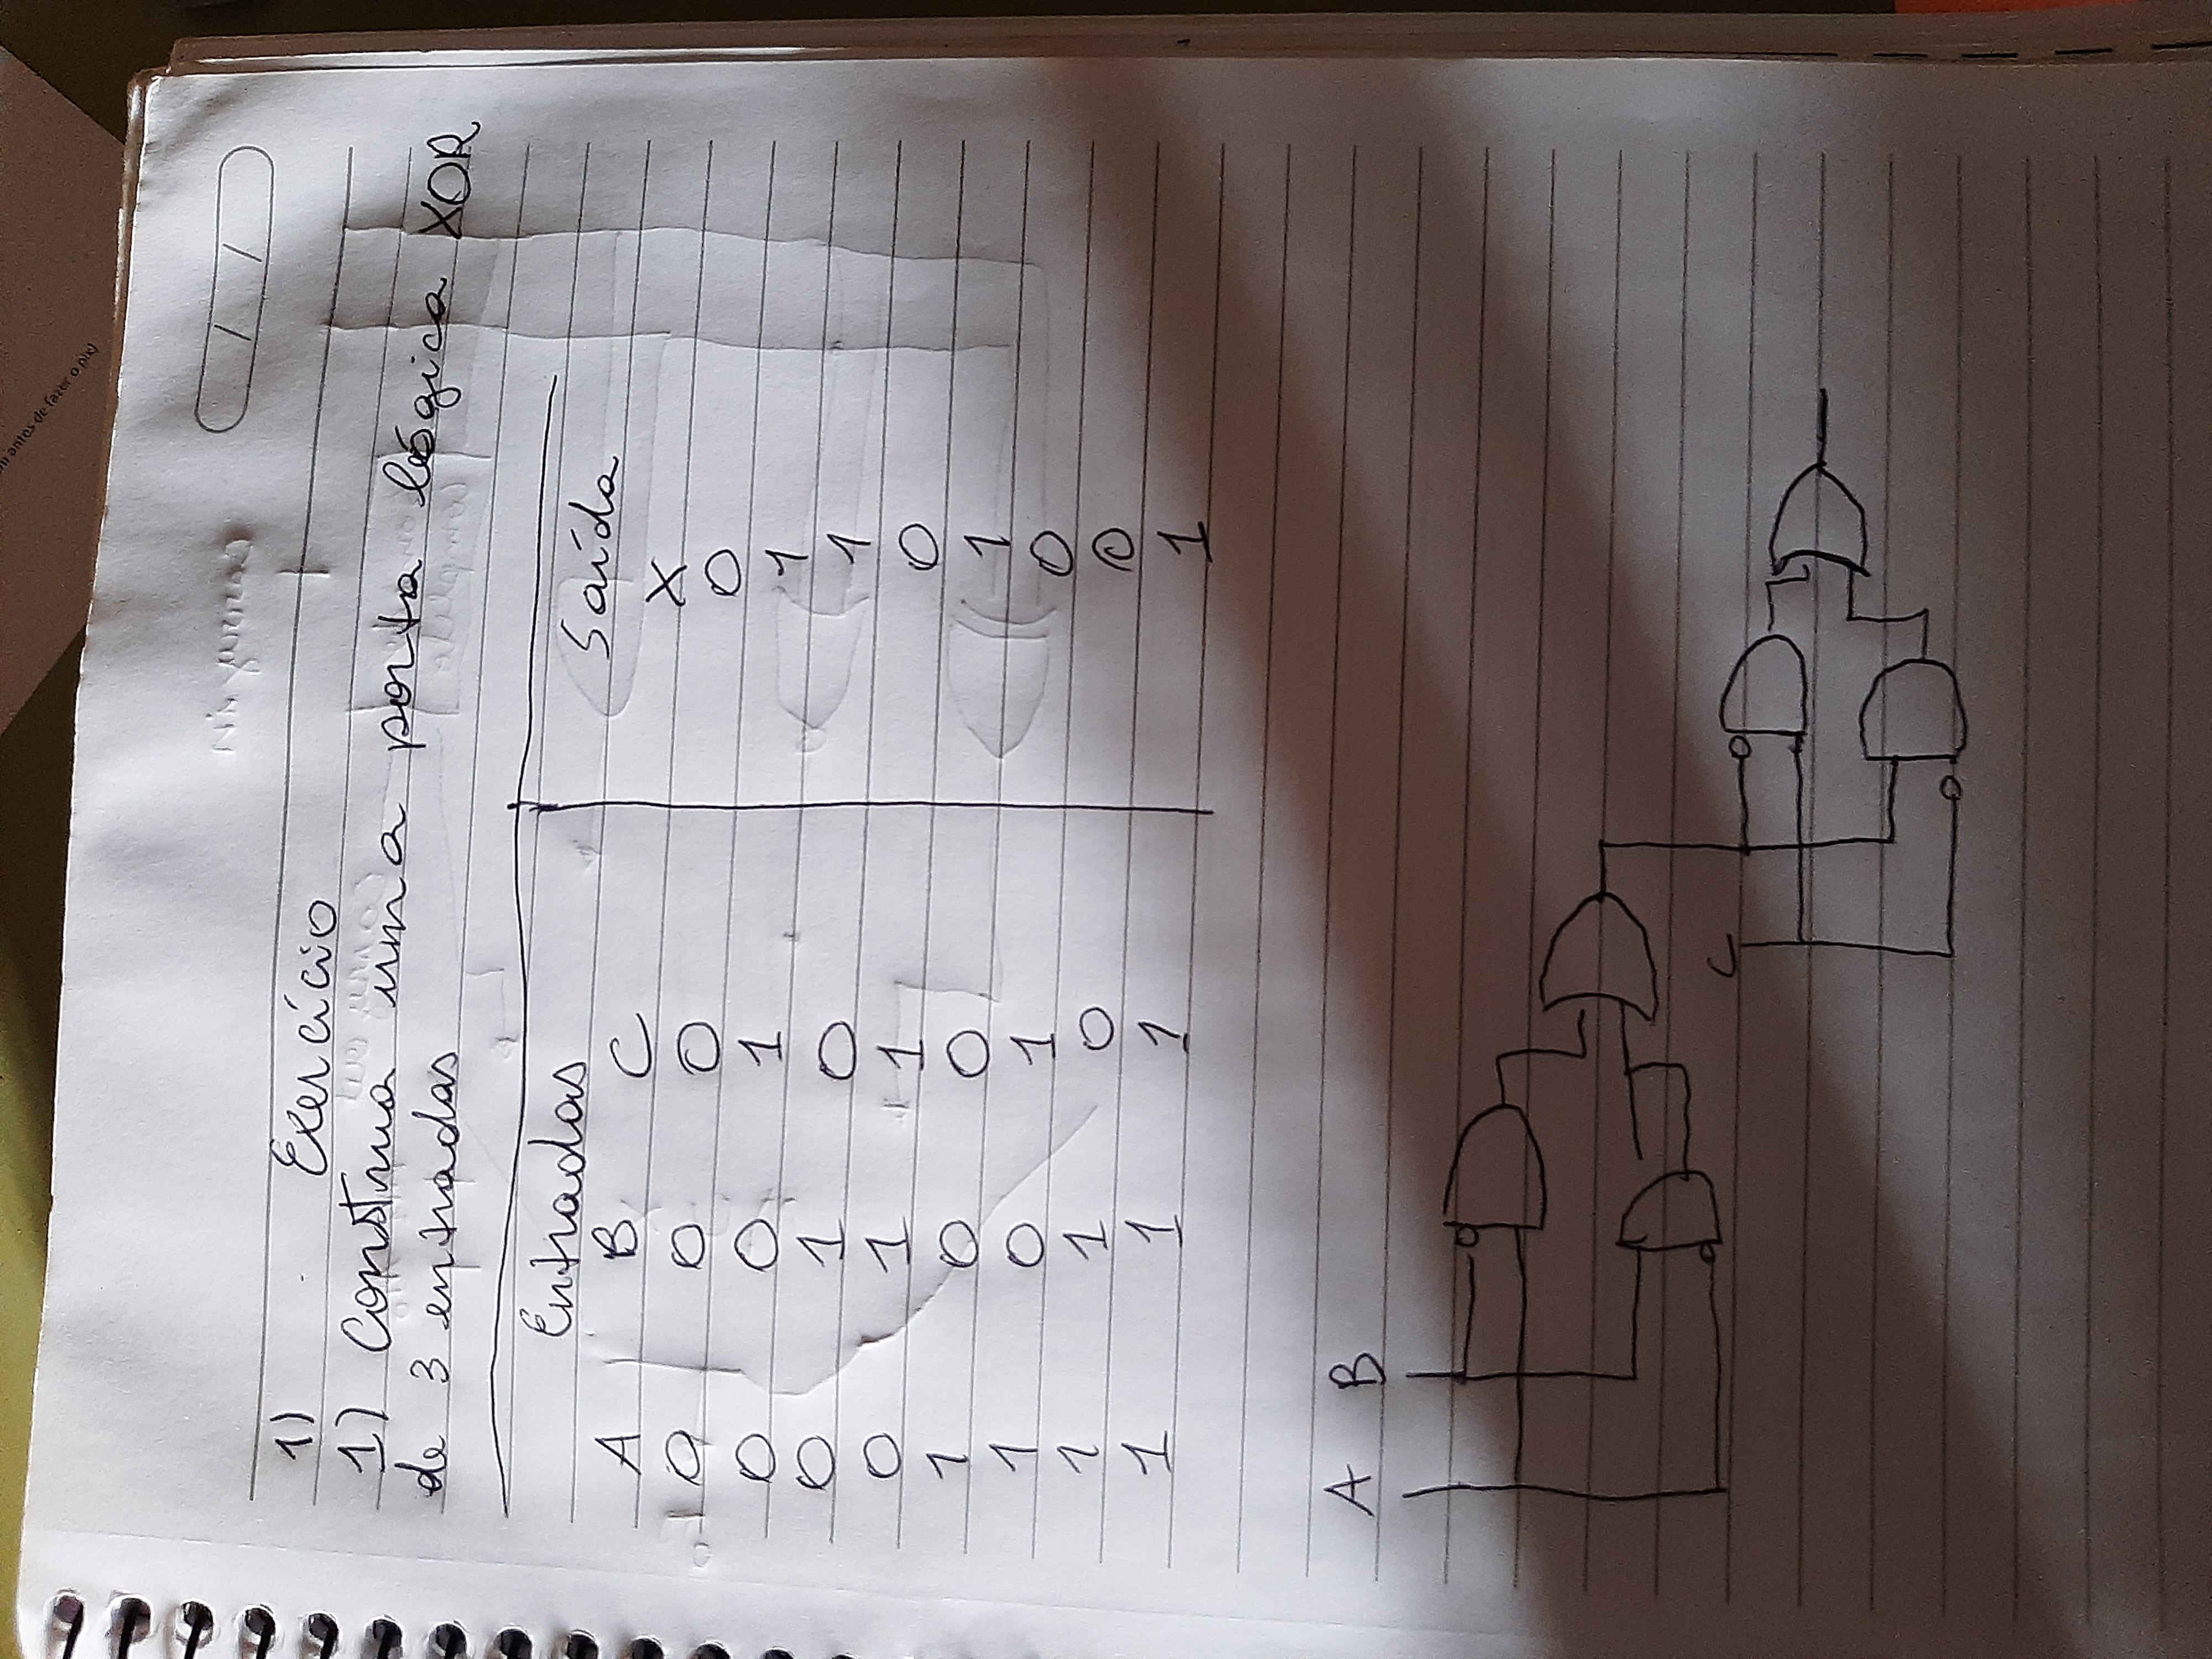 1) Exercício
1) Construa uma porta lógica XOR
de 3 entradas
Entradas Saída
A B C X
0 0 0 0
0 0 1 1
0 1 0 1
0 1 1 0
1 0 0 1
1 0 1 0
1 1 0 0
1 1 1 1
A B
C